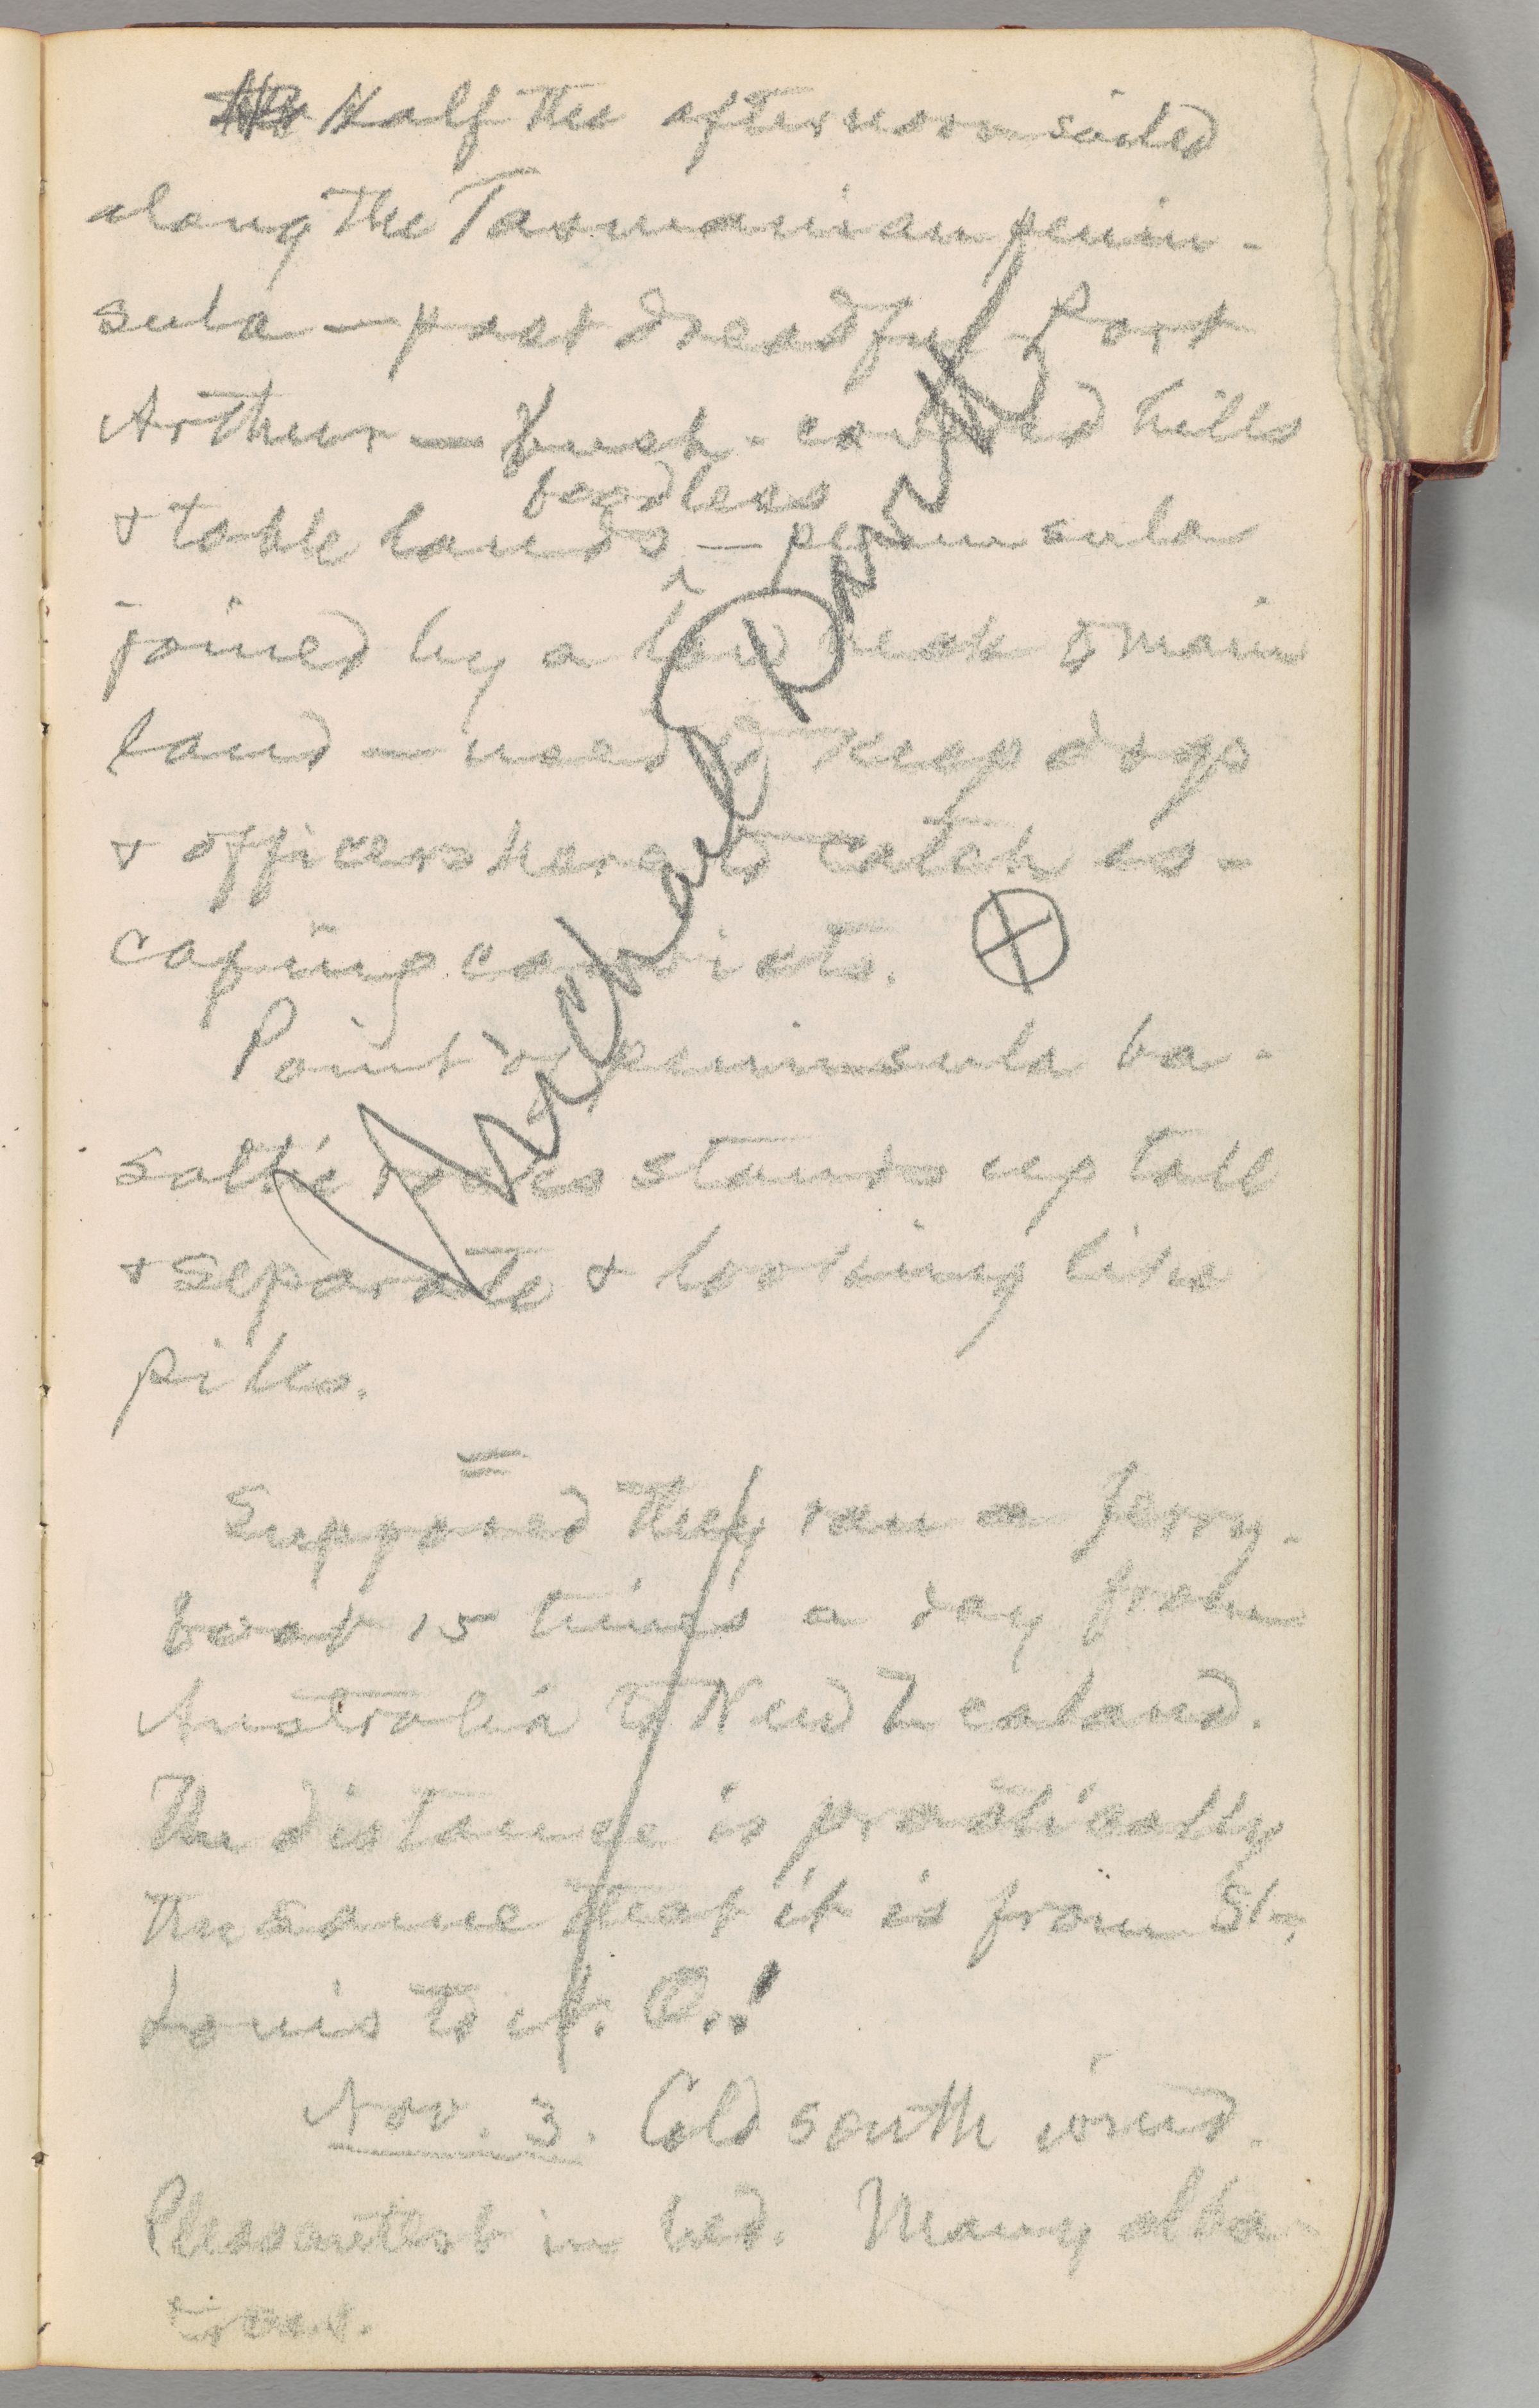 Half the afternoon sailed
along the Tasmanian penin-
sula — past dreadful Port
Arthur — bush-covered hills
& table lands — peninsula
joined by a low neck to main
land — used to keep dogs
& officers here to catch es-
caping convicts. ⊗
Point of peninsula ba-
saltic rocks stands up tall
& separate & looking like
pikes.
=
Supposed they ran a ferry-
boat 15 times a day from
Australia to New Zealand.
The distance is practically
the same that it is from St.
Louis to N. O.!
Nov. 3. Cold south wind.
Pleasantest in bed. Many alba
tross.